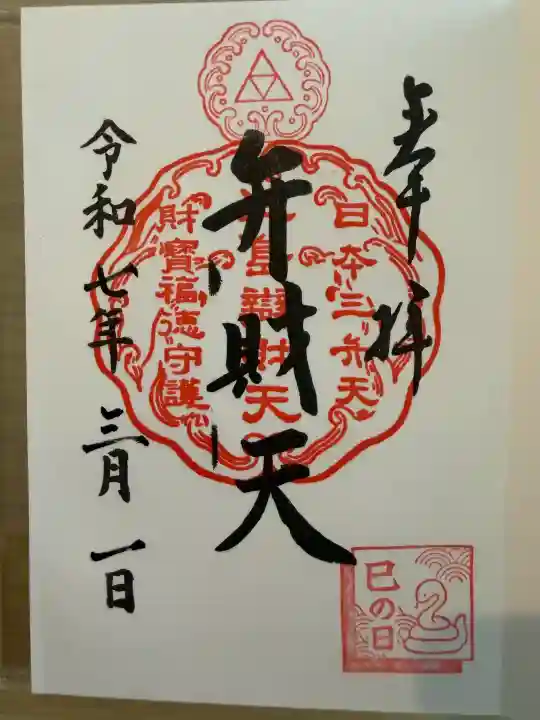 奉拝
日本三弁天
島辯財天
財寶福徳守護
弁財天
令和七年三月一日
巳の日